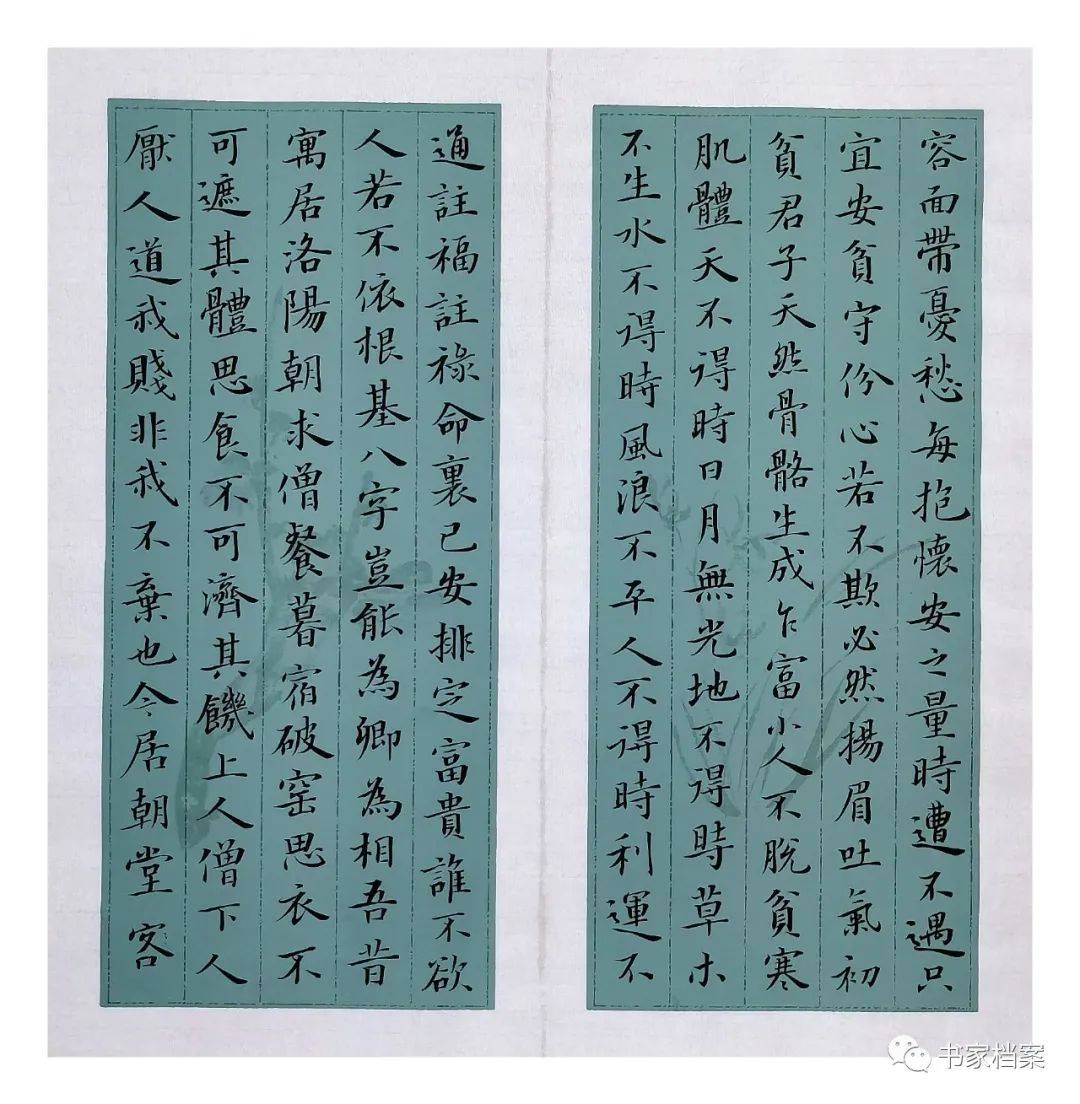 容面帶憂愁每抱懷安之量時遭不遇只
宜安貧守份心若不欺必然揚眉吐氣初
貧君子天然骨骼生成乍富小人不脫貧寒
肌體天不得時日月無光地不得時草木
不生水不得時風浪不平人不得時利運不
通註福註祿命裏已安排定富貴誰不欲
人若不依根基八字豈能為卿為相吾昔
寓居洛陽朝求僧餐暮宿破窑思衣不
可遮其體思食不可濟其饑上人僧下人
厭人道我賤非我不棄也今居朝堂客
书家档案